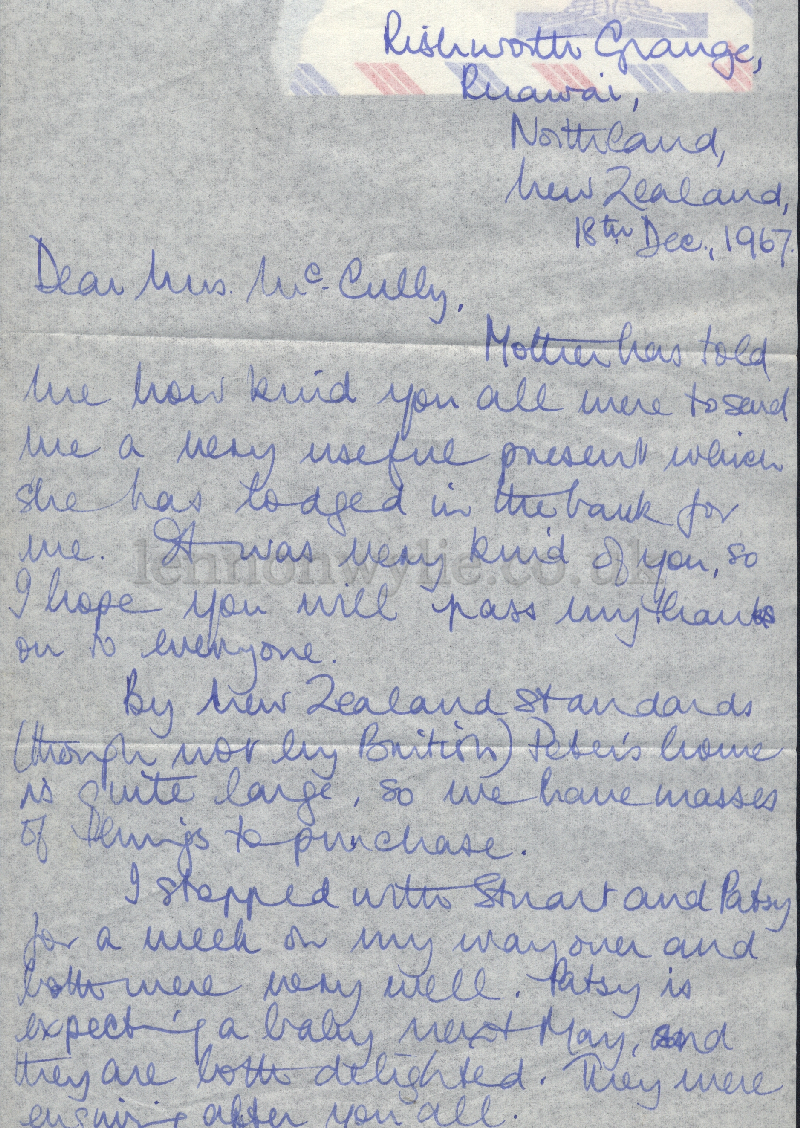 Rishworth Grange,
Ruawai,
Northland,
New Zealand,
18th Dec., 1967.
Dear Mrs. McCully,
Mother has told
me how kind you all were to send
me a very useful present which
she has lodged in the bank for
me. It was very kind of you, so
lennonwylie.co.uk
I hope you will pass my thanks
on to everyone.
By New Zealand standards
(though not by British) Peter's home
is quite large, so we have masses
of things to purchase.
I stopped with Stuart and Patsy
for a week on my way over and
both were very well. Patsy is
expecting a baby next May, and
they are both delighted. They were
enquiring after you all.